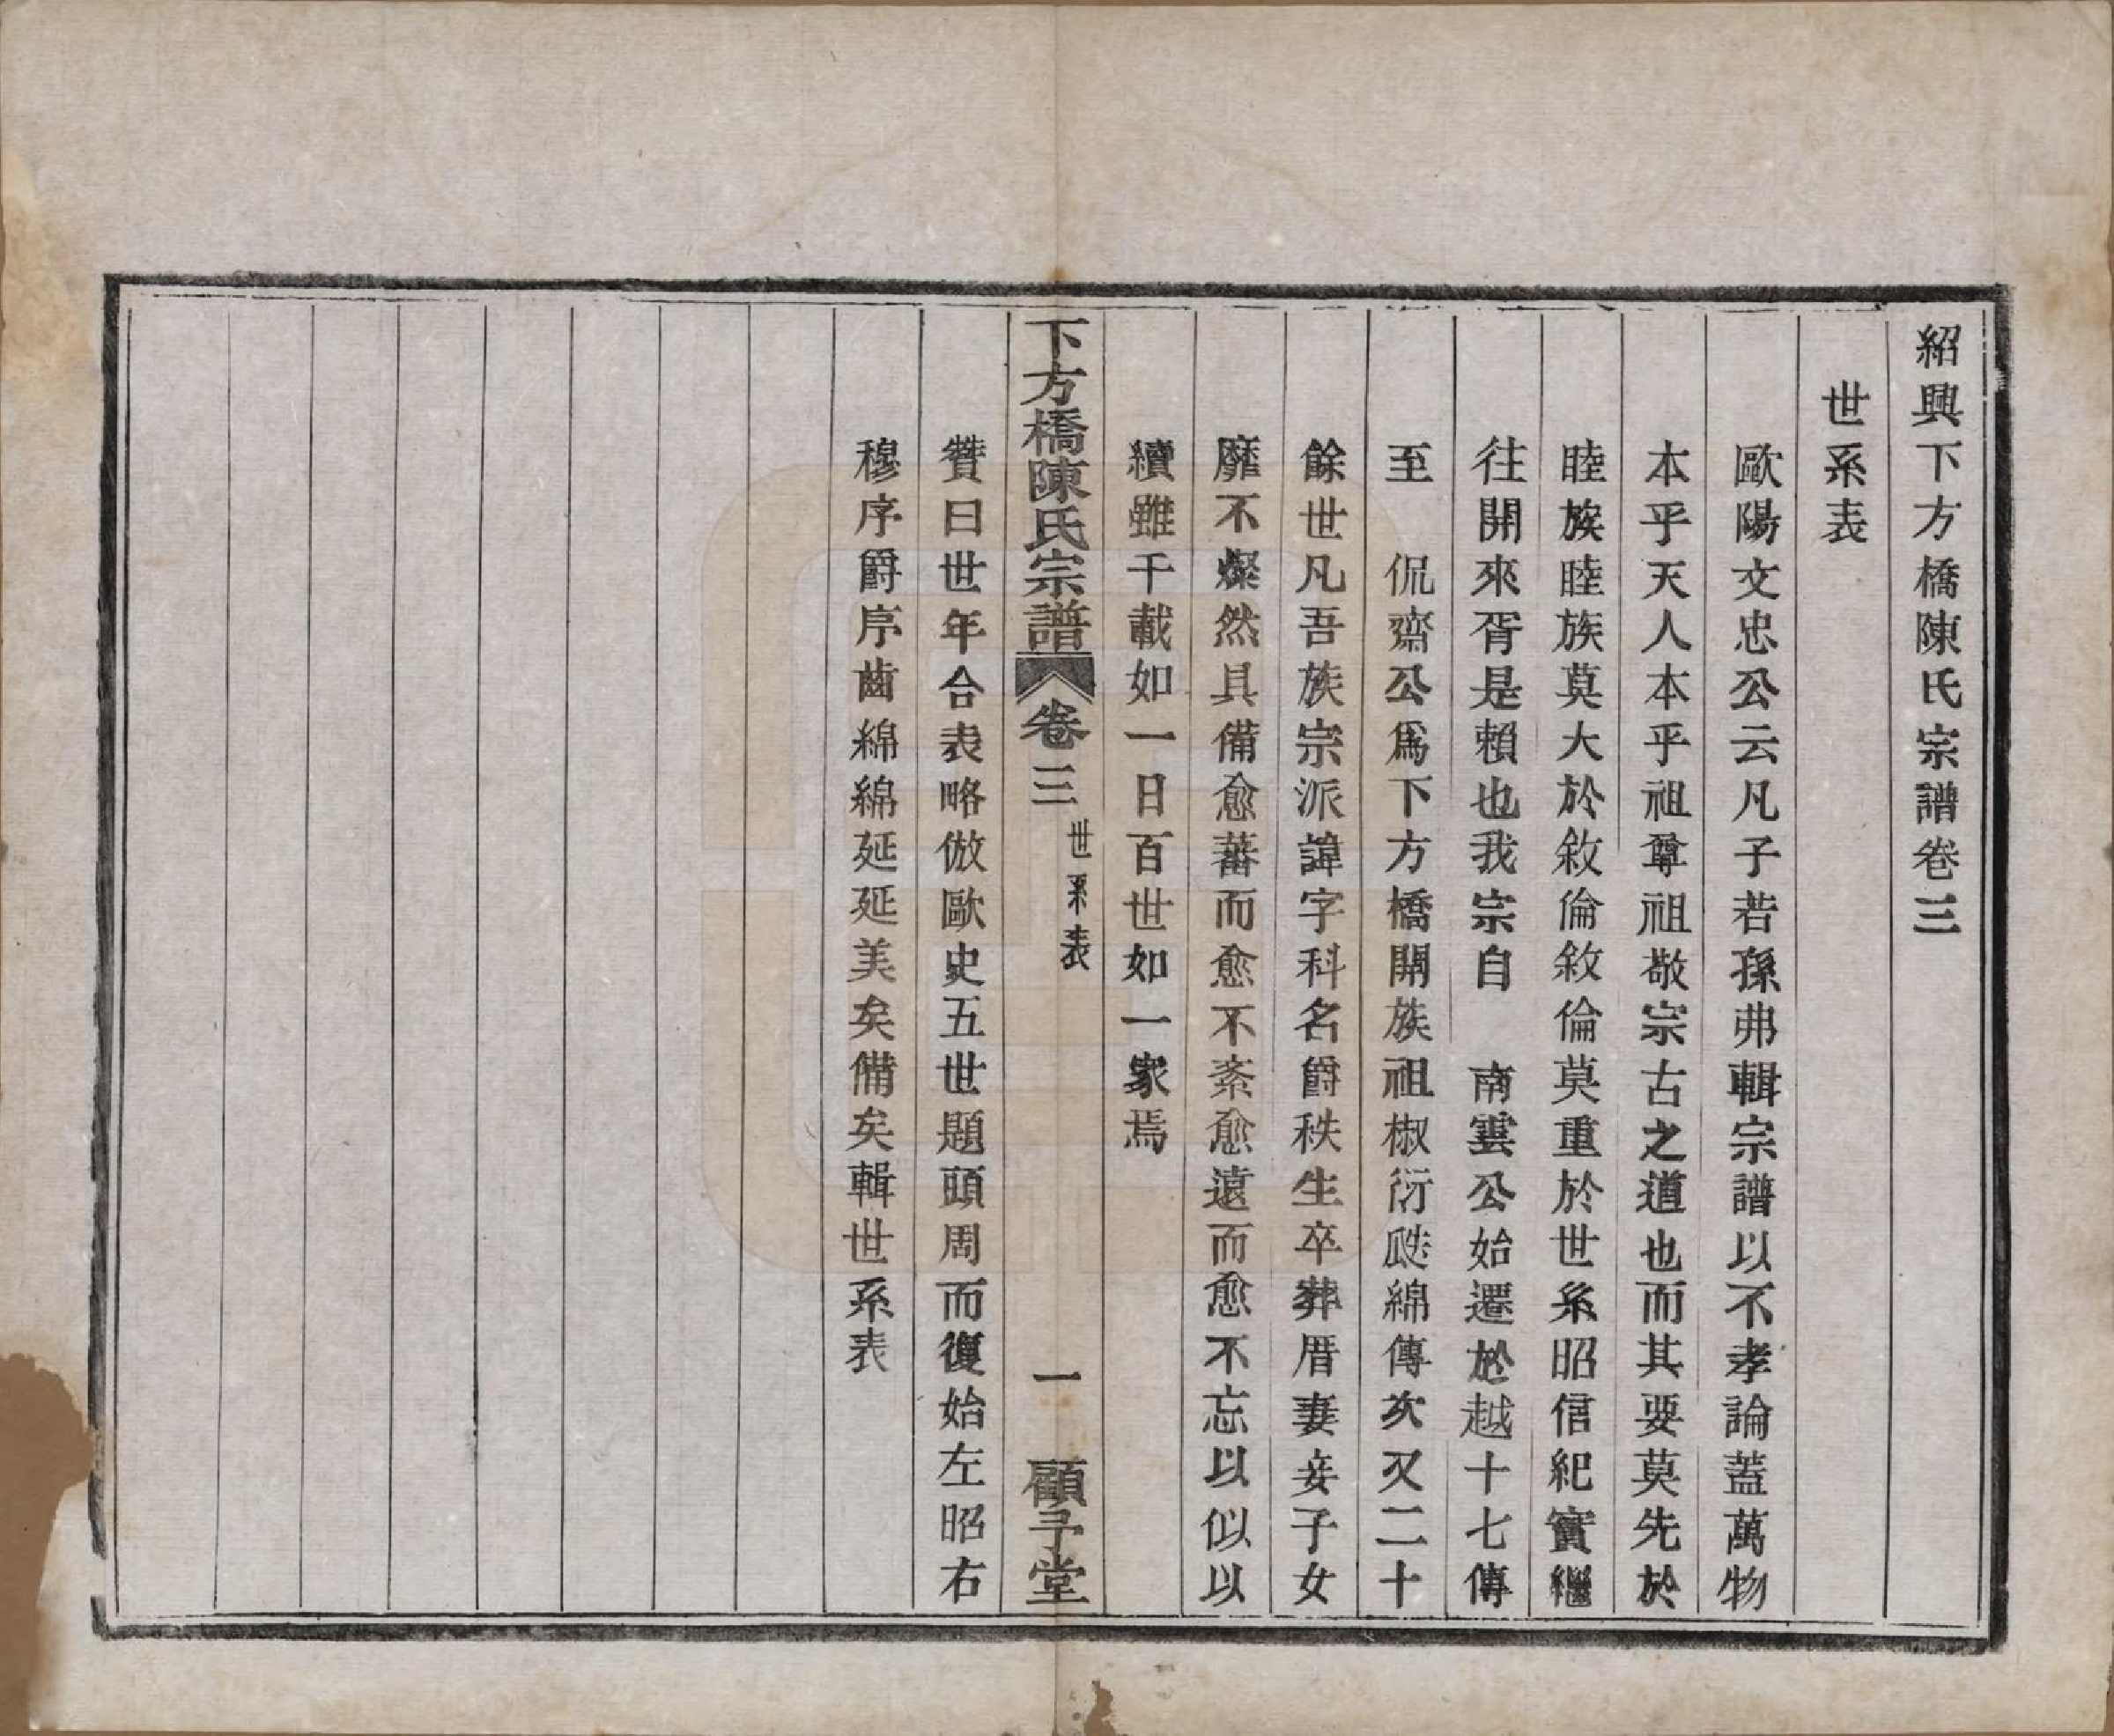 紹興下方橋陳氏宗譜卷三
世系表
歐陽文忠公云凡子若孫弗輯宗譜以不孝論蓋萬物
本乎天人本乎祖尊祖敬宗古之道也而其要莫先於
睦族睦族莫大於敘倫敘倫莫重於世系昭信紀實繼
往開來胥是賴也我宗自　南雲公始遷於越十七傳
至　侃齋公爲下方橋開族祖椒衍瓞綿傳次又二十
餘世凡吾族宗派諱字科名爵秩生卒葬厝妻妾子女
靡不燦然具備愈蕃而愈不紊愈遠而愈不忘以似以
續雖千載如一日百世如一家焉
下方橋陳氏宗譜　卷三　世系表　一　顧予堂
贊曰世年合表略倣歐史五世題頭周而復始左昭右
穆序爵序齒綿綿延延美矣備矣輯世系表